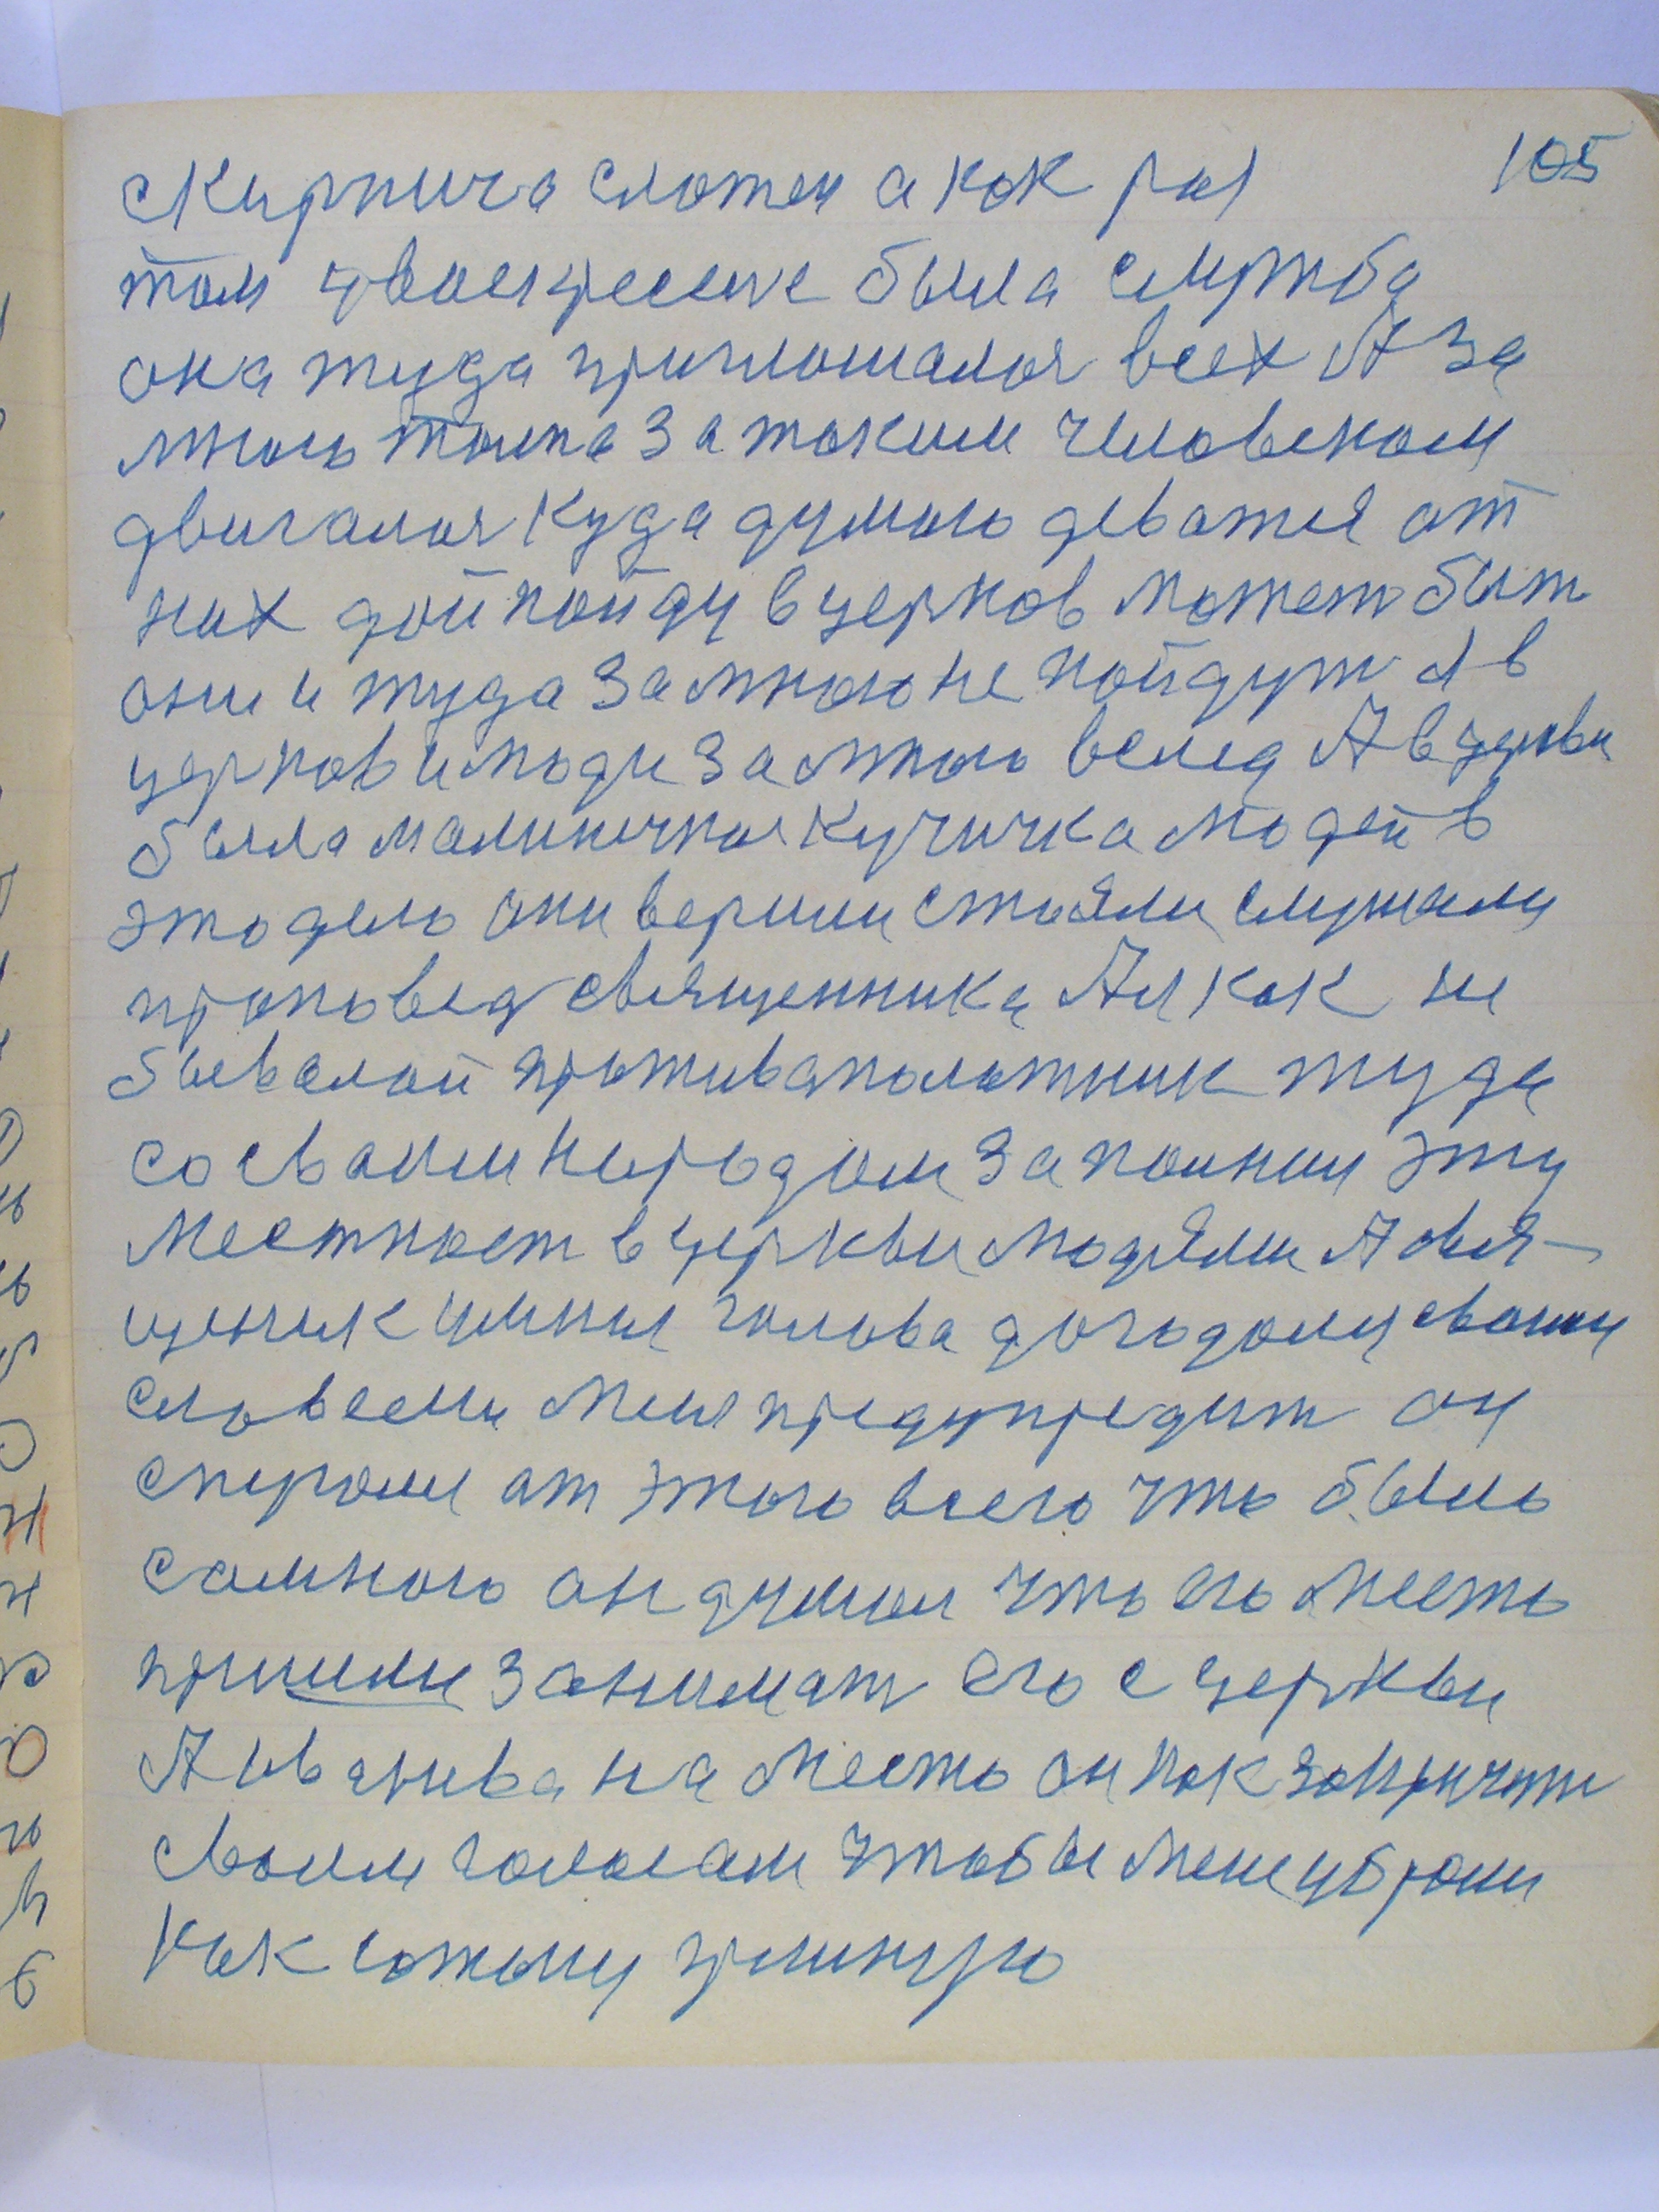 105
скирпича сложен а как раз
там увоскресение была служба
она туда приглошалоя всех А за
мною толпа за таким человеком
двигалоя Куда думаю деватся от
них дай пойду в церков может быт
они и туда за мною не пойдут Я в
церков и люди за мною вслед А в церкви
была малинечкоя кучичка людей в
это дело они верили стояли слушали
проповед священника А я как не
бывалой противаположник туда
со своим народом заполнил эту
местност в церкви людями А свя-
щеник умная голова догодолу своими
словесеми меня предупредит он
спугался ат этого всего что было
самною он думал что его место
пришли занимат его с церкви
А на место он как закричит
своим голосам чтобы меня убрали
Как сотону